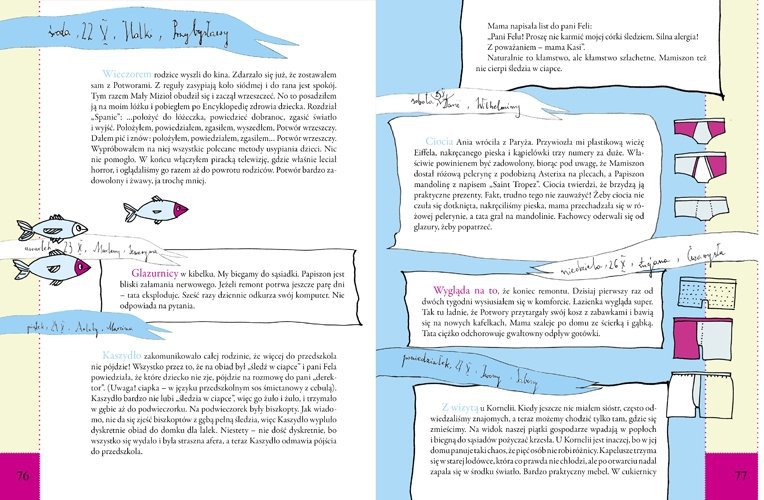 środa, 22 X, Halki, Przybysławy
Wieczorem rodzice wyszli do kina. Zdarzało się już, że zostawałem
sam z Potworami. Z reguły zasypiają koło siódmej i do rana jest spokój.
Tym razem Mały Mizioł obudził się i zaczął wrzeszczeć. No to posadziłem
ją na moim łóżku i pobiegłem po Encyklopedię zdrowia dziecka. Rozdział
„Spanie”: ...położyć do łóżeczka, powiedzieć dobranoc, zgasić światło
i wyjść. Położyłem, powiedziałem, zgasiłem, wyszedłem, Potwór wrzeszczy.
Dałem pić i znów: położyłem, powiedziałem, zgasiłem... Potwór wrzeszczy.
Wypróbowałem na niej wszystkie polecane metody usypiania dzieci. Nic
nie pomogło. W końcu włączyłem piracką telewizję, gdzie właśnie leciał
horror, i oglądaliśmy go razem aż do powrotu rodziców. Potwór bardzo za-
dowolony i żwawy, ja trochę mniej.
czwartek 23 X, Marleny, Seweryna
Glazurnicy w kibelku. My biegamy do sąsiadki. Papiszon jest
bliski załamania nerwowego. Jeżeli remont potrwa jeszcze parę dni
– tata eksploduje. Sześć razy dziennie odkurza swój komputer. Nie
odpowiada na pytania.
piątek, 24 X, Marcina
Kaszydło zakomunikowało całej rodzinie, że więcej do przedszkola
nie pójdzie! Wszystko przez to, że na obiad był „śledź w ciapce” i pani Fela
powiedziała, że które dziecko nie zje, pójdzie na rozmowę do pani „derek-
tor”. (Uwaga! ciapka – w języku przedszkolnym sos śmietanowy z cebulą).
Kaszydło bardzo nie lubi „śledzia w ciapce”, więc go żuło i żuło, i trzymało
w gębie aż do podwieczorku. Na podwieczorek były biszkopty. Jak wiado-
mo, nie da się zjeść biszkoptów z gębą pełną śledzia, więc Kaszydło wypluło
dyskretnie obiad do domku dla lalek. Niestety – nie dość dyskretnie, bo
wszystko się wydało i była straszna afera, a teraz Kaszydło odmawia pójścia
do przedszkola.
76
Mama napisała list do pani Feli:
„Pani Felu! Proszę nie karmić mojej córki śledziem. Silna alergia!
Z poważaniem – mama Kasi”.
Naturalnie to kłamstwo, ale kłamstwo szlachetne. Mamiszon też
nie cierpi śledzia w ciapce.
sobota, 25 X, Darii, Wilhelminy
Ciocia Ania wróciła z Paryża. Przywiozła mi plastikową wieżę
Eiffela, nakręcanego pieska i kąpielówki trzy numery za duże. Wła-
ściwie powinienem być zadowolony, biorąc pod uwagę, że Mamiszon
dostał różową pelerynę z podobizną Asterixa na plecach, a Papiszon
mandolinę z napisem „Saint Tropez”. Ciocia twierdzi, że brzydzą ją
praktyczne prezenty. Fakt, trudno tego nie zauważyć! Żeby ciocia nie
czuła się dotknięta, nakręciliśmy pieska, mama przechadzała się w ró-
żowej pelerynie, a tata grał na mandolinie. Fachowcy oderwali się od
glazury, żeby popatrzeć.
niedziela, 26 X, Lucjana, Ewarysta
Wygląda na to, że koniec remontu. Dzisiaj pierwszy raz od
dwóch tygodni wysiusiałem się w komforcie. Łazienka wygląda super.
Tak tu ładnie, że Potwory przytargały swój kosz z zabawkami i bawią
się na nowych kafelkach. Mama szaleje po domu ze ścierką i gąbką.
Tata ciężko odchorowuje gwałtowny odpływ gotówki.
poniedziałek, 27 X, Iwony, Sabiny
Z wizytą u Kornelii. Kiedy jeszcze nie miałem sióstr, często od-
wiedzaliśmy znajomych, a teraz możemy chodzić tylko tam, gdzie się
zmieścimy. Na widok naszej piątki gospodarze wpadają w popłoch
i biegną do sąsiadów pożyczać krzesła. U Kornelii jest inaczej, bo w jej
domu panuje taki chaos, że pięć osób nie robi różnicy. Kapelusze trzyma
się w starej lodówce, która co prawda nie chłodzi, ale po otwarciu nadal
zapala się w środku światło. Bardzo praktyczny mebel. W cukiernicy
77